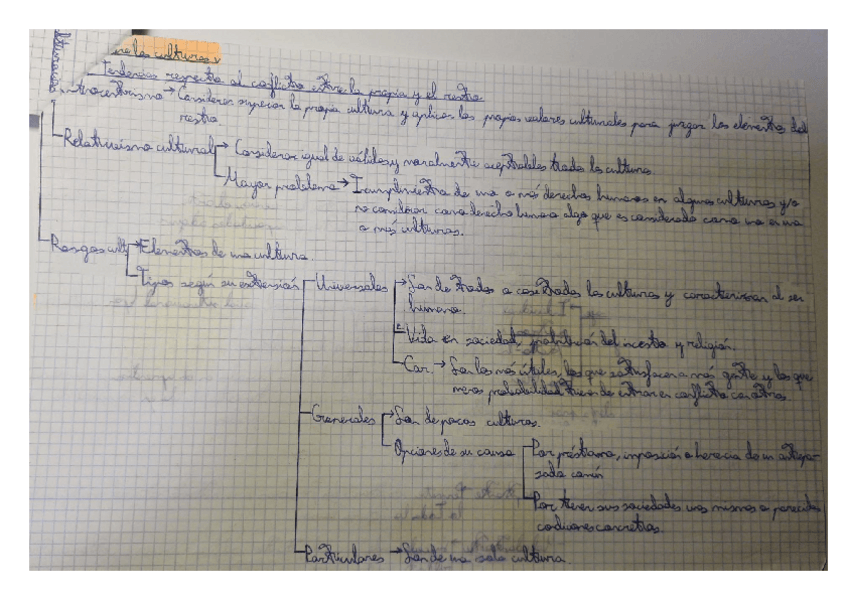 re las culturas
Tendencias respecto al conflicto entre la propia y el resto
Etnocentrismo → Considerar superior la propia cultura y aplicar los propios valores culturales para juzgar los elementos del
resto
Relativismo cultural → Considerar igual de válidos y moralmente aceptables todas las culturas.
Mayor problema → Incumplimiento de uno o más derechos humanos en algunas culturas y/o
no considerar como derecho humano algo que es considerado como uno en una
o más culturas.
Rasgos cult → Elementos de una cultura.
Tipos según su extensión
Universales → Son de todas o casi todas las culturas y caracterizan al ser
humano.
Vida en sociedad, prohibición del incesto y religión.
Car. → Son los más útiles, los que satisfacen a más gente y los que
menos probabilidad tienen de entrar en conflicto con otros
Generales → Son de pocas culturas.
Opciones de su causa
Por préstamo, imposición o herencia de un antepa-
sado común
Por tener sus sociedades unas mismas o parecidas
condiciones concretas.
Particulares → Son de una sola cultura.